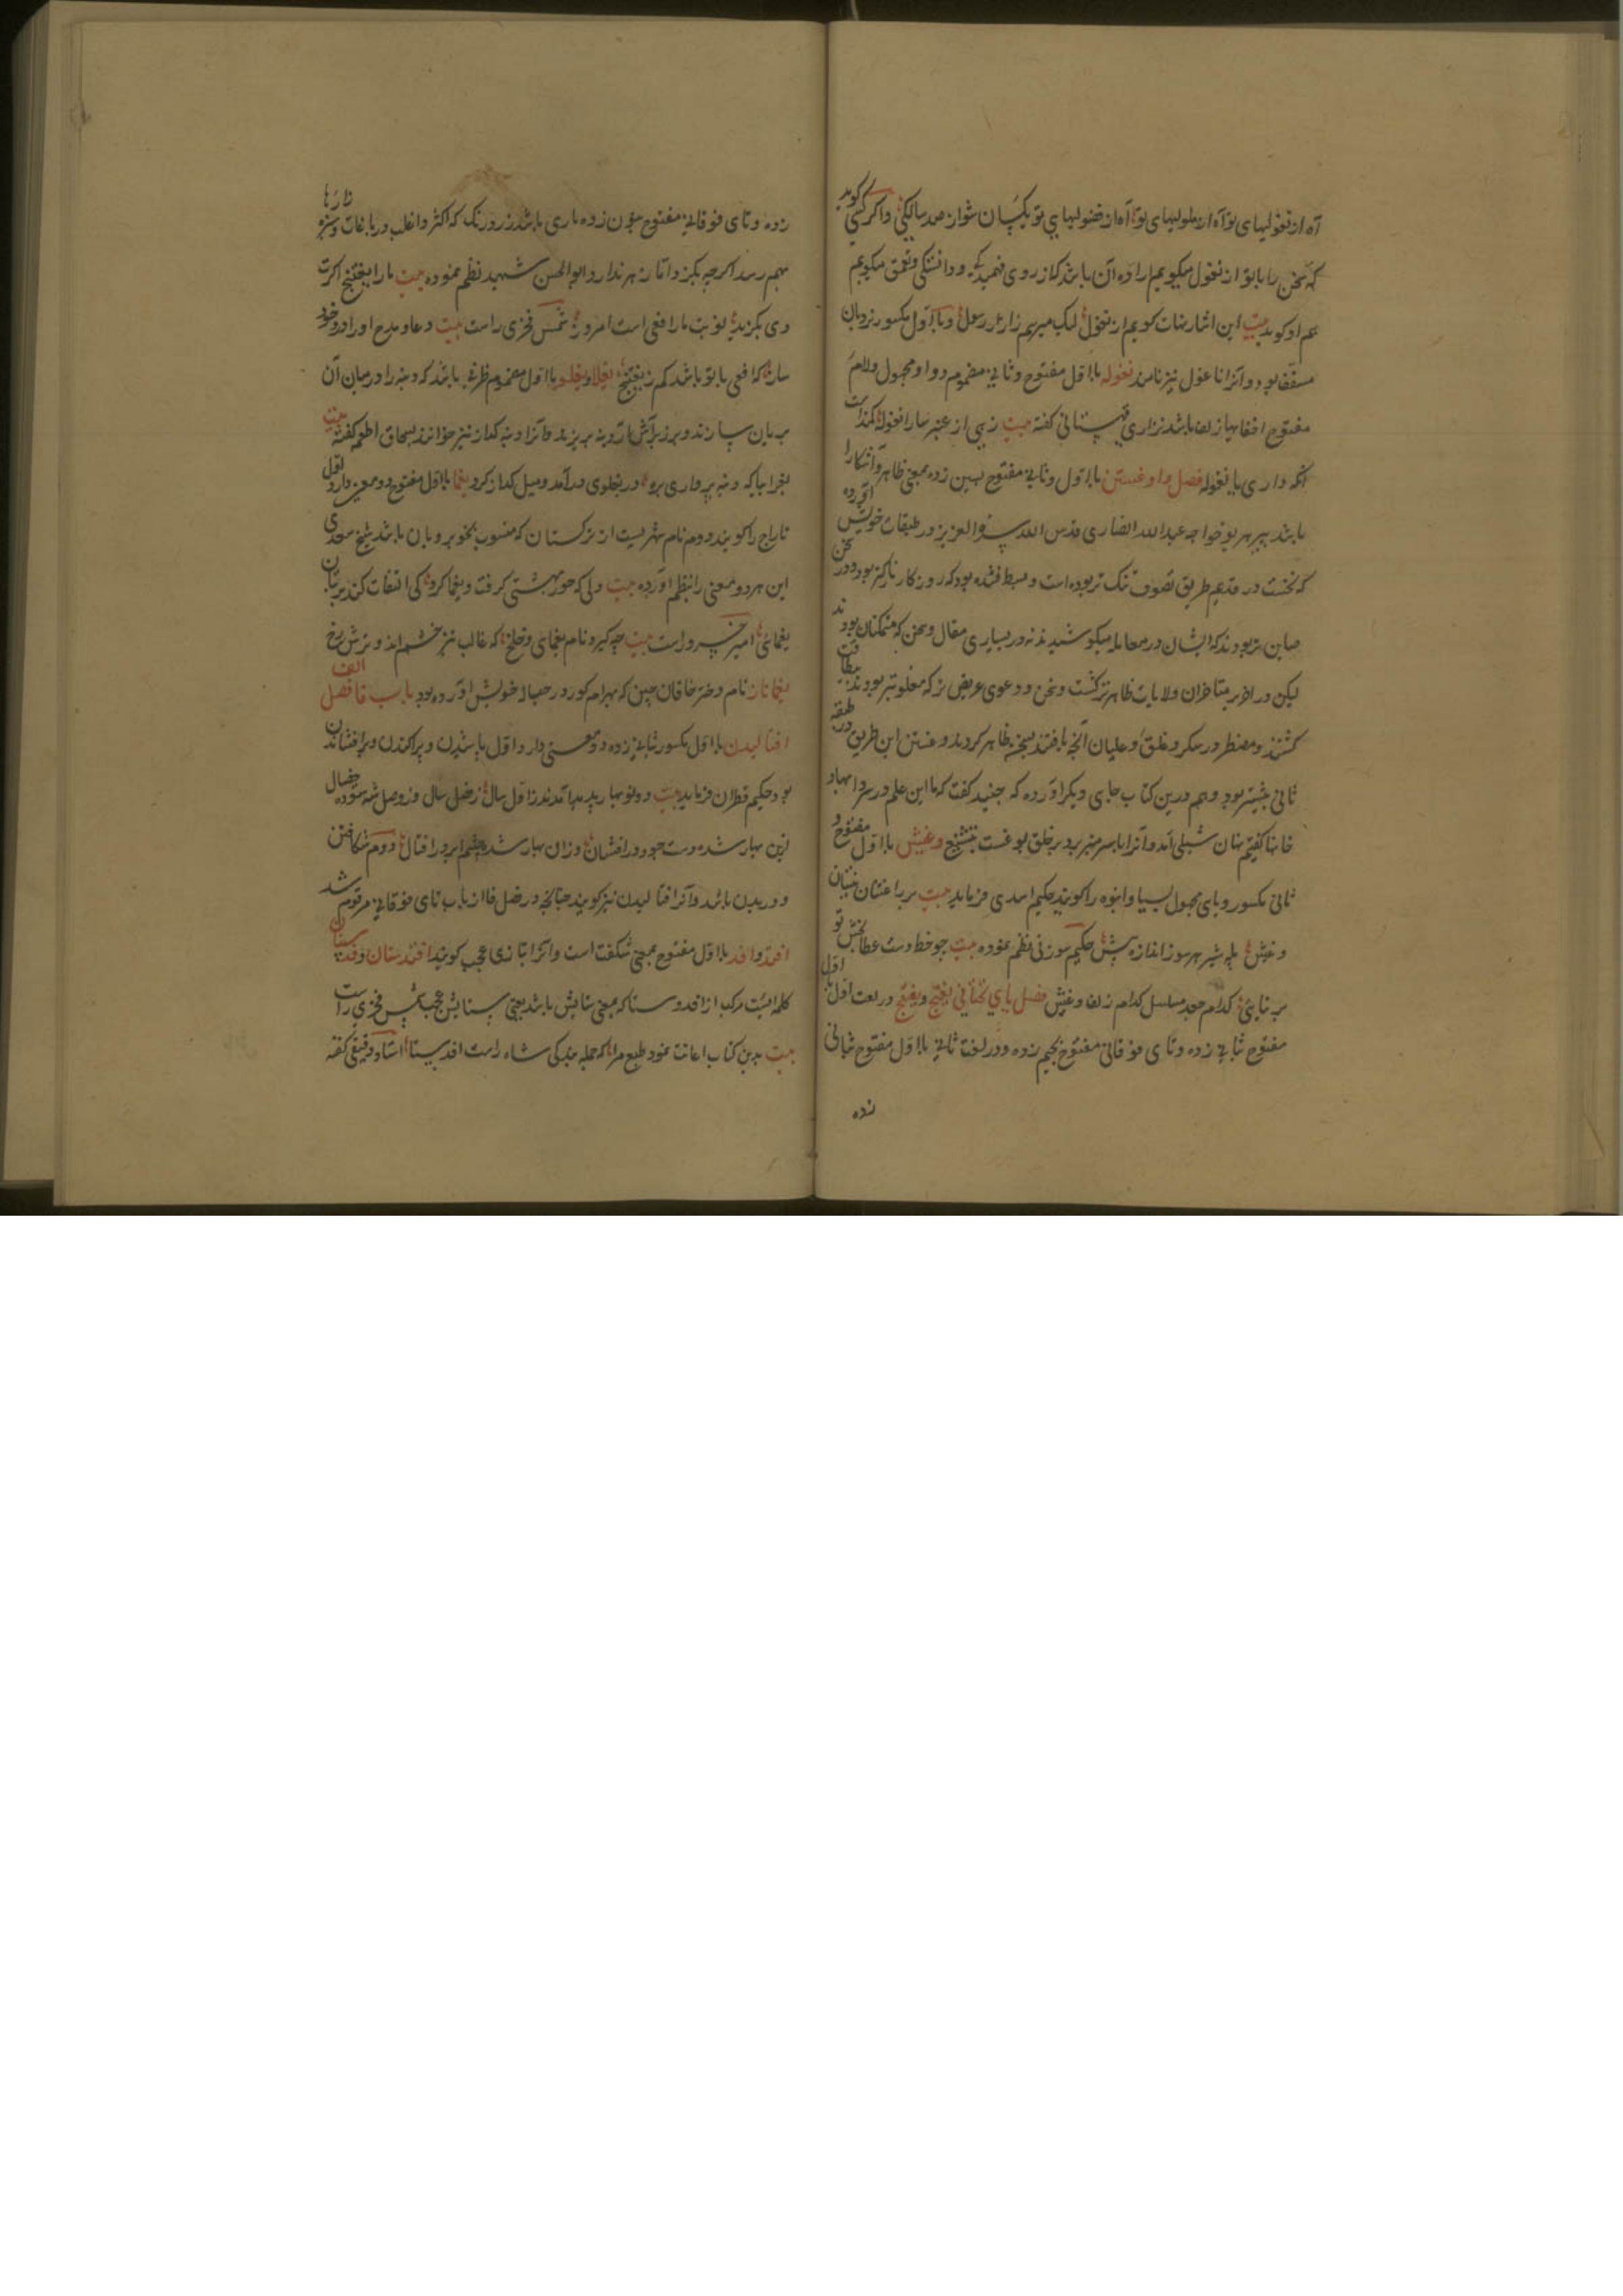 آه از نغولیهای تو آه از ملولیهای تو آه از فضولیهای تو یکسان شو از صد سالکی و اگر کسی گوید
که سخن را با تو از نغول میکویم اراده آن باشد که از روی فهمیدکی و دانستکی و تعمق میکویم
هم او کوید بیت این اشارتهات کویم از نغول لیک میترسم ز آزار رسول و با اول مکسور نردبان
مسقف بود و آنرا ناغول نیز نامند نغوله با اول مفتوح و ثانی مضموم و واو مجهول و لام
مفتوح زلف باشد نزاری قهستانی کفته بیت زهی از عنبر سارا نغوله
انکه داری با نغوله فصل واو غستن با اول و ثانی مفتوح بسین زده بمعنی ظاهر و آشکارا
باشد پیر هری خواجه عبد الله انصاری قدس الله سره العزیز در طبقات خویش آورده
که نخست در قدیم طریق تصوف تنک تر بوده است و بسط نشده بود که روزکار نازکتر بود و در سخن
صاین تر بودند که ایشان در معامله میکوشیدند نه در بسیاری مقال و سخن که متمکنان بودند
لیکن در آخر بر متاخران ولایات ظاهرتر کشت و سخن و دعوی عریض تر که مغلوبتر بودند بیطاقت
کشتند و مضطر در سکر و غلق و غلیان آنچه یافتند بسخن ظاهر کردند و غستن این طریق در طبقه
ثانی بیشتر بود و هم درین کتاب جای دیکر آورده که جنید کفت که ما این علم در سردابها و
خانها کفتیم نهان شبلی آمد و آنرا با سر منبر برد بر خلق وغست و غیش با اول مفتوح و
ثانی مکسور و یای مجهول بسیار و انبوه را کویند حکیم اسدی فرماید بیت
و غیش یله شیر هر سو ز اندازه بیش حکیم سوزنی نظم نموده بیت چو خط دست عطابخش تو
بر نایی کدام جعد مسلسل کدام زلف و غیش فصل یای تحتانی یغتج و یغتنج در لغت اول با اول
مفتوح بثانی زده و تای فوقانی مفتوح بجیم زده و در لغت ثانی با اول مفتوح بثانی
زده
زده و تای فوقانی مفتوح بنون زده ماری باشد زرد رنک که اکثر و اغلب در باغات و سبزه زارها
بهم رسد اکرچه بکزد اما زهر ندارد ابو الحسن شهید نظم نموده بیت مار یغتنج اکرت
دی بکزید نوبت مار افعی است امروز شمس فخری راست بیت دعا و مدح او را ورد خود
ساز که افعی با تو باشد کم ز یغتنج یغلا و یغلو با اول مضموم ظرفی باشد که دنبه را در میان آن
بریان سازند و بر زبر آش آرد بریزند و آنرا دنبه کداز نیز خوانند بسحاق اطعمه کفته بیت
بغرا بیا که دنبه پرواری بره در یغلوی درآمد و میل کداز کرد یغما با اول مفتوح دو معنی دارد اول
تاراج را کویند دوم نام شهریست از ترکستان که منسوب بخوبرویان باشد شیخ سعدی
این هر دو معنی را بنظم آورده بیت دلی که حور بهشتی کرفت و یغما کرد کی التفات کند بر بتان
یغمائی امیر خسرو راست بیت چه کیرد نام یغمای و خلخ که غالب نیز خشم اند و ترش رخ
یغما ناز نام دختر خاقان چین که بهرام کور در حباله خویش آورده بود باب فا فصل الف
افتالیدن با اول مکسور بثانی زده دو معنی دارد اول پاشیدن و پراکندن و برافشاندن
بود حکیم قطران فرماید بیت دو نوبهار پدید آمدند ز اول سال ز فصل سال و ز وصل شه ستوده خصال
ازین بهار شده دست جود در افشان وزان بهار شده چشم ابر در افتال و دوم شکافتن
و دریدن باشد و آنرا فتالیدن نیز کویند چنانچه در فصل فا از باب تای فوقانی مرقوم شد
افد و افد با اول مفتوح بمعنی شکفت است و آنرا بتازی عجب کویند افدستان و فدستان
کلمه ایست مرکب از افد و ستا که بمعنی ستایش باشد یعنی ستایش عجب شمس فخری راست
بیت بدین کتاب اعانت نمود طبع مرا که جمله بندکی شاه راست افدستا استاد دقیقی کفته